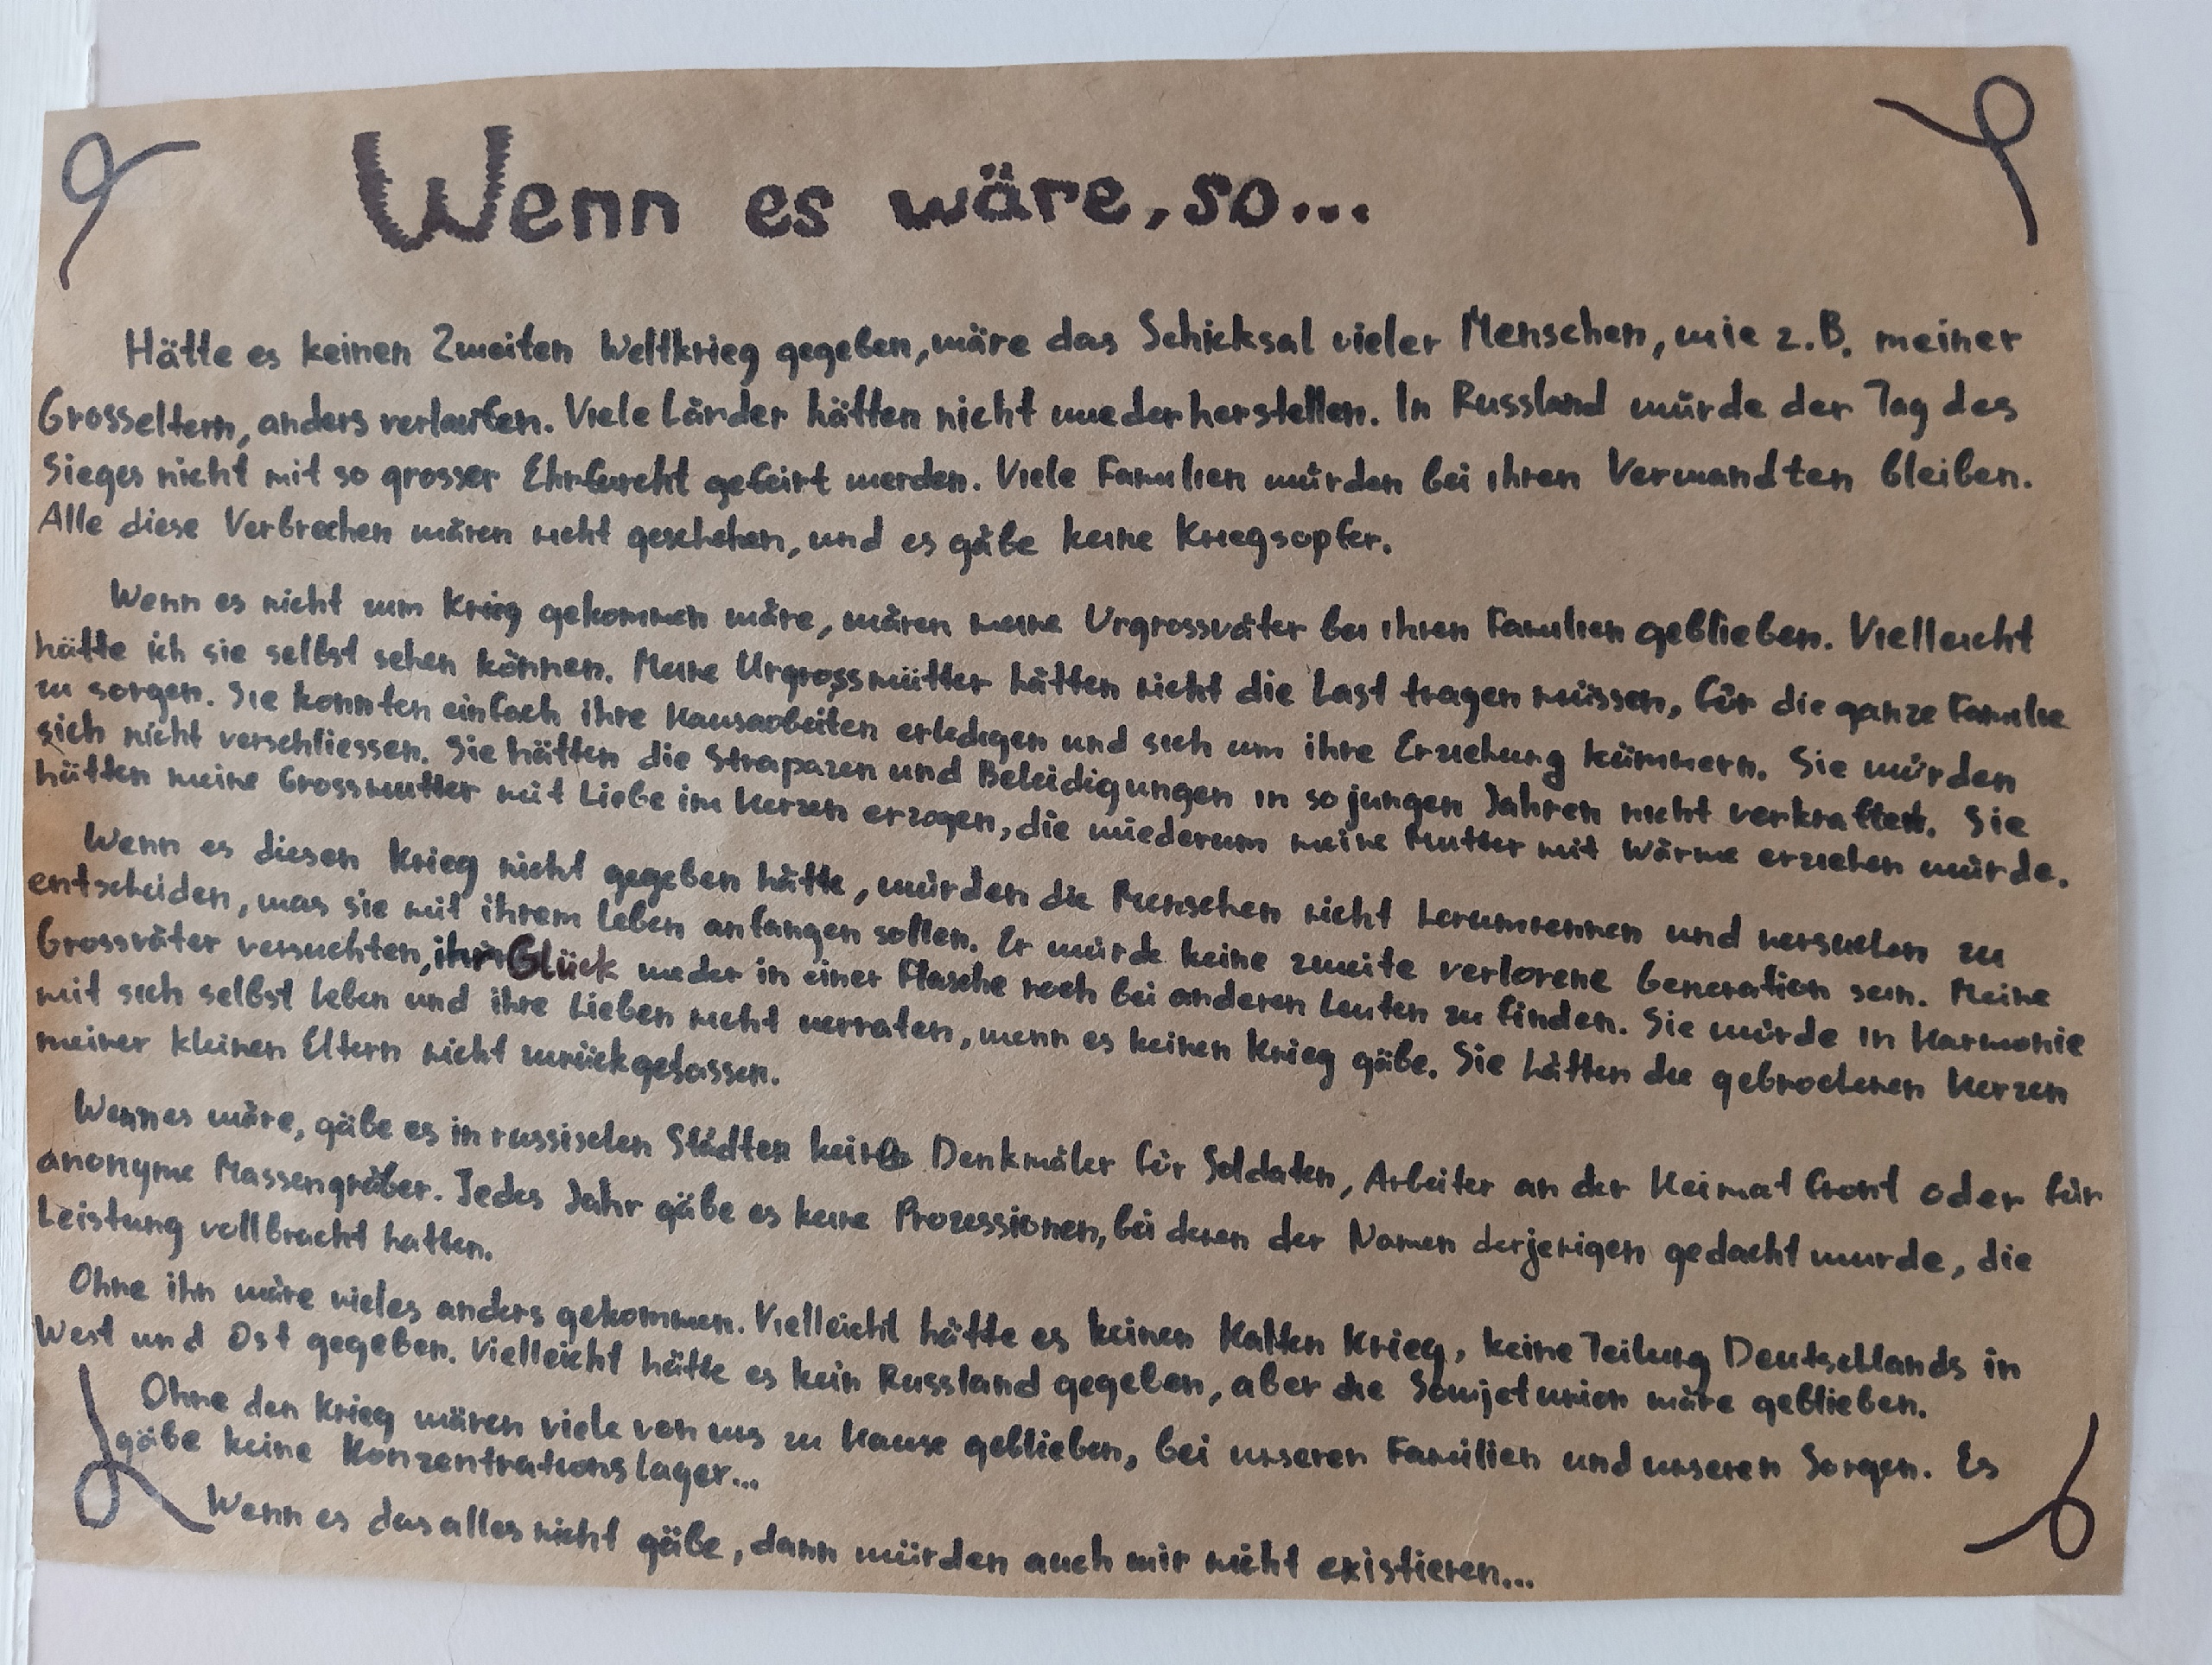 Wenn es wäre, so...
Hätte es keinen Zweiten Weltkrieg gegeben, wäre das Schicksal vieler Menschen, wie z.B. meiner
Grosseltern, anders verlaufen. Viele Länder hätten nicht wiederherstellen. In Russland würde der Tag des
Sieges nicht mit so grosser Ehrfurcht gefeirt werden. Viele Familien würden bei ihren Verwandten bleiben.
Alle diese Verbrechen wären nicht geschehen, und es gäbe keine Kriegsopfer.
Wenn es nicht zum Krieg gekommen wäre, wären meine Urgrossväter bei ihren Familien geblieben. Vielleicht
hätte ich sie selbst sehen können. Meine Urgrossmütter hätten nicht die Last tragen müssen, für die ganze Familie
zu sorgen. Sie konnten einfach ihre Hausarbeiten erledigen und sich um ihre Erziehung kümmern. Sie würden
sich nicht verschliessen. Sie hätten die Strapazen und Beleidigungen in so jungen Jahren nicht verkraftet. Sie
hätten meine Grossmutter mit Liebe im Herzen erzogen, die wiederum meine Mutter mit Wärme erziehen würde.
Wenn es diesen Krieg nicht gegeben hätte, würden die Menschen nicht herumrennen und versuchen zu
entscheiden, was sie mit ihrem Leben anfangen sollen. Er würde keine zweite verlorene Generation sein. Meine
Grossväter versuchten, ihr Glück weder in einer Flasche noch bei anderen Leuten zu finden. Sie würde in Harmonie
mit sich selbst leben und ihre Lieben nicht verraten, wenn es keinen Krieg gäbe. Sie hätten die gebrochenen Herzen
meiner kleinen Eltern nicht zurückgelassen.
Wenn es wäre, gäbe es in russischen Städten keine Denkmäler für Soldaten, Arbeiter an der Heimatfront oder für
anonyme Massengräber. Jedes Jahr gäbe es keine Prozessionen, bei denen der Namen derjenigen gedacht wurde, die
Leistung vollbracht hatten.
Ohne ihn wäre vieles anders gekommen. Vielleicht hätte es keinen Kalten Krieg, keine Teilung Deutschlands in
West und Ost gegeben. Vielleicht hätte es kein Russland gegeben, aber die Sowjetunion wäre geblieben.
Ohne den Krieg wären viele von uns zu Hause geblieben, bei unseren Familien und unseren Sorgen. Es
gäbe keine Konzentrationslager...
Wenn es das alles nicht gäbe, dann würden auch wir nicht existieren...